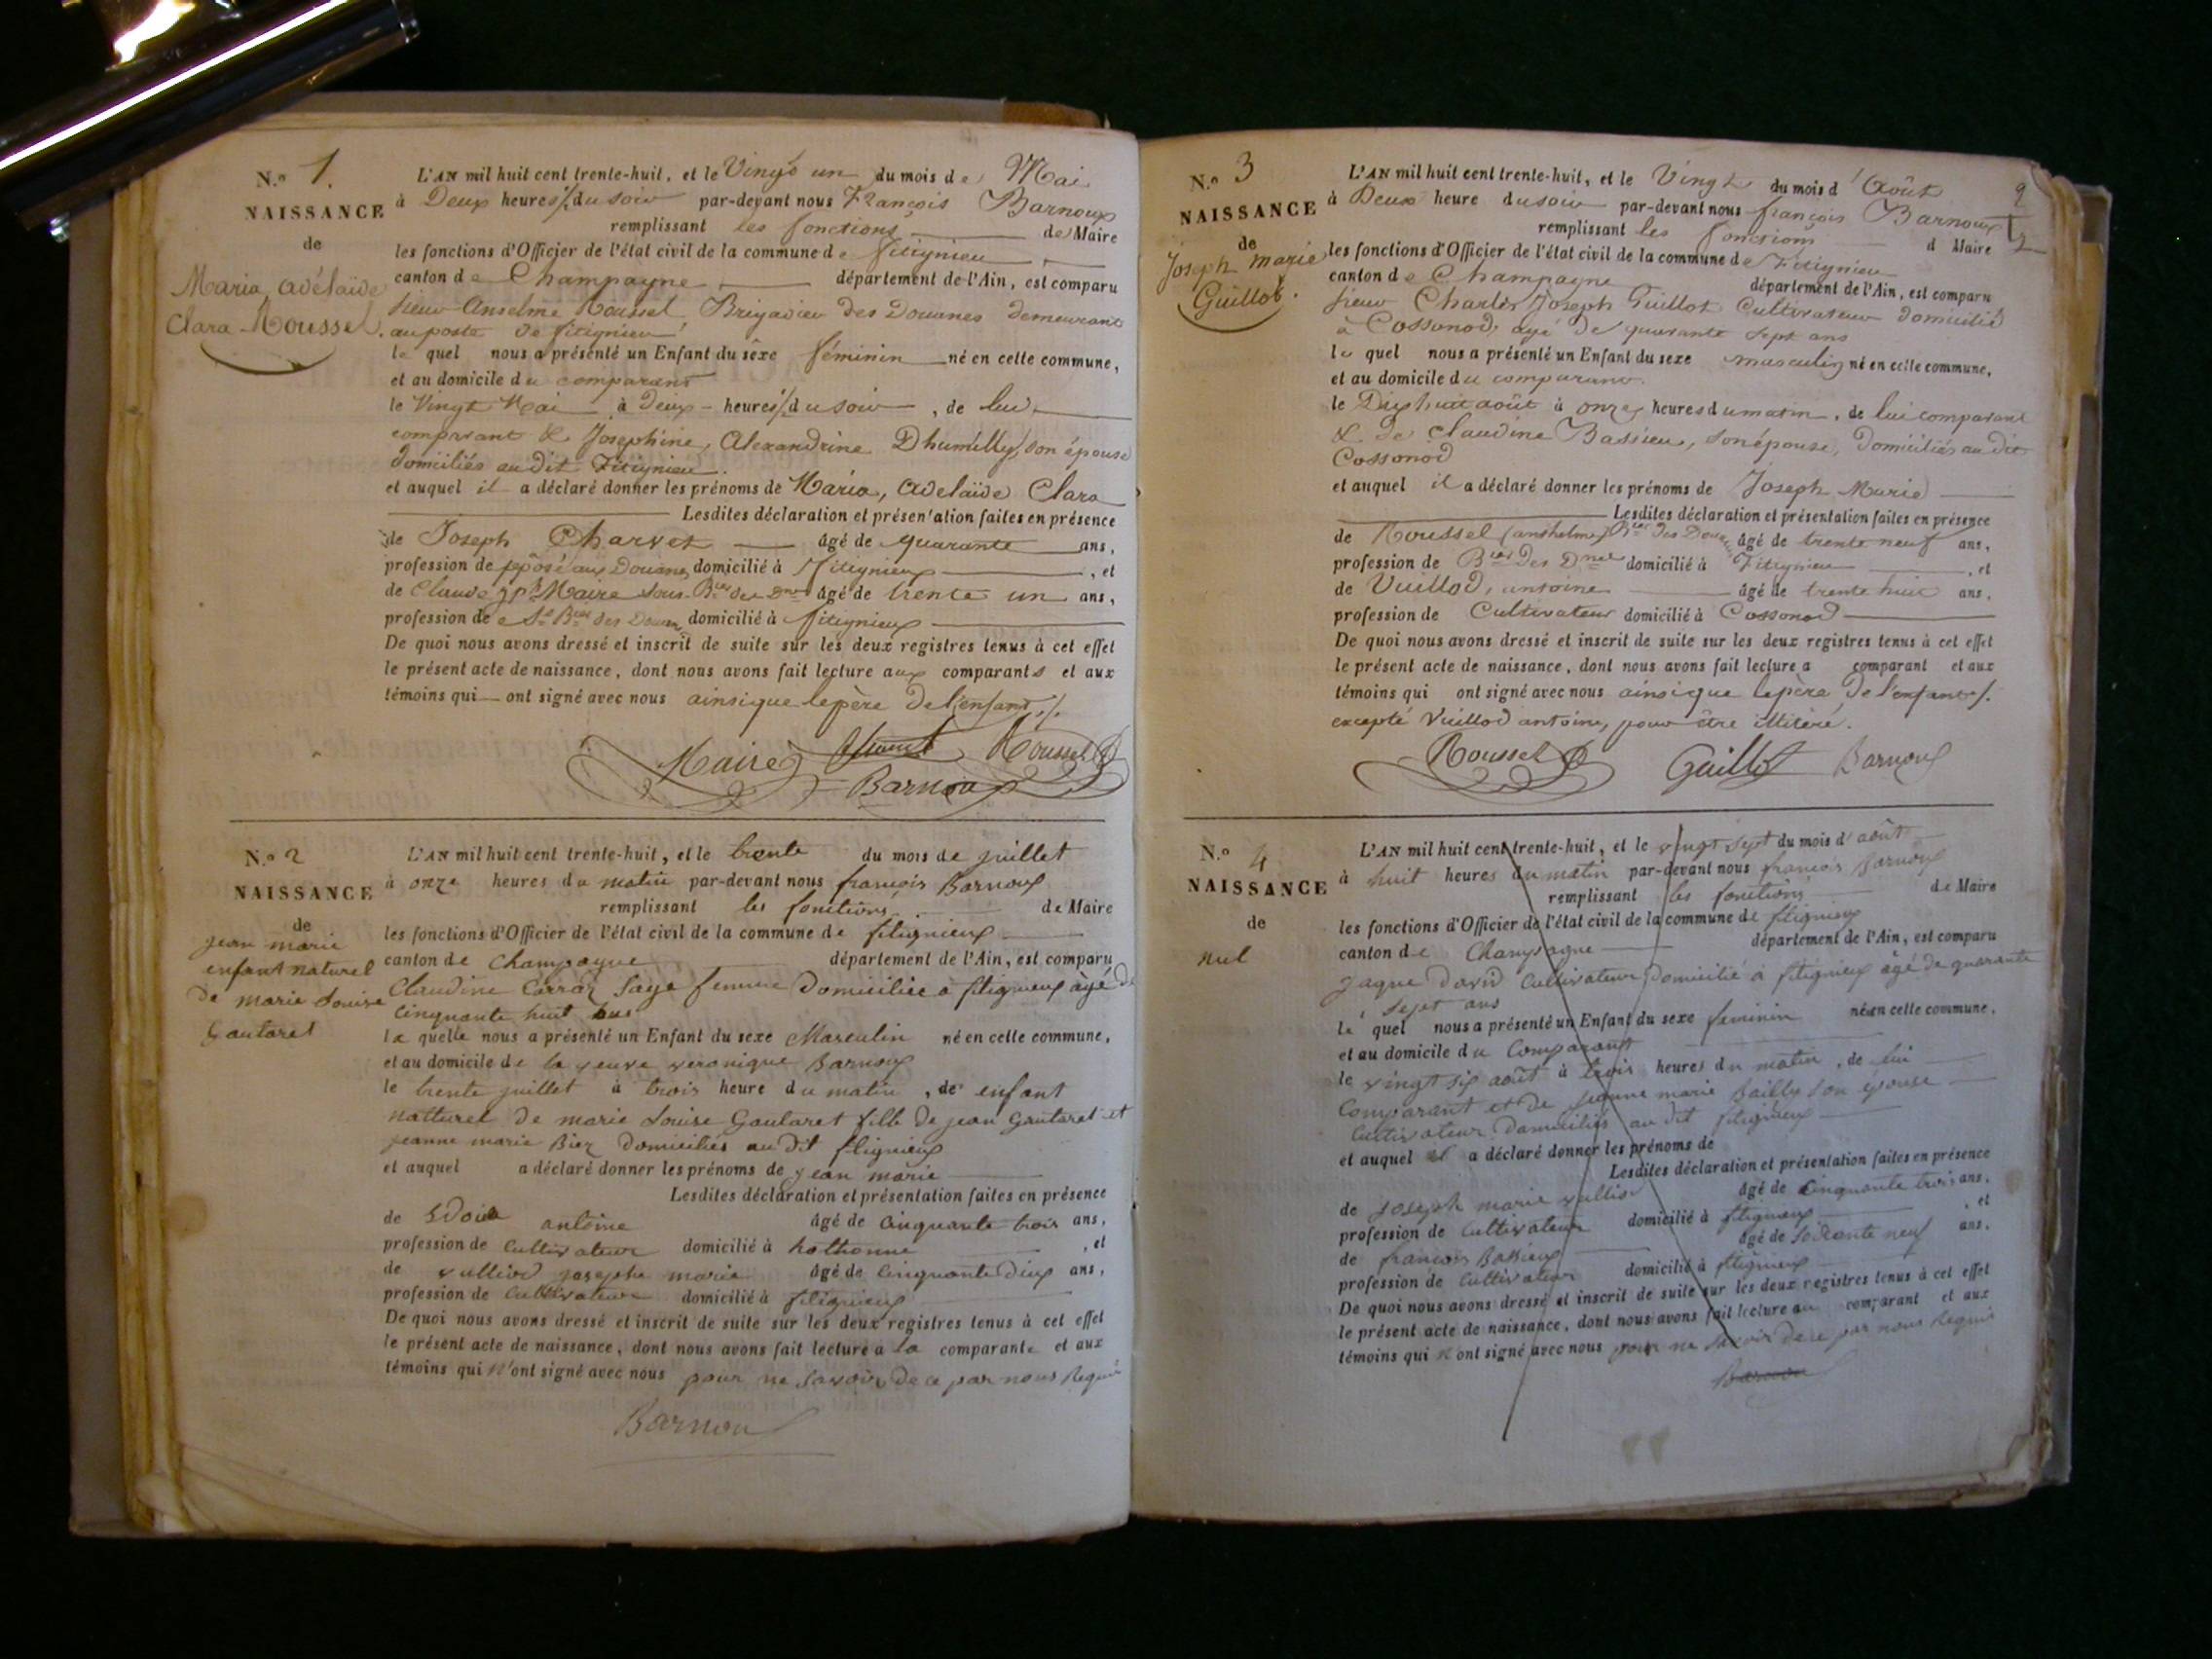 N.o 1.
NAISSANCE
de
Maria adélaïde
Clara Roussel.
L'AN mil huit cent trente-huit, et le Vingt un du mois de Mai
à Deux heures du soir par-devant nous François Barnoux
remplissant les fonctions de Maire
les fonctions d'Officier de l'état civil de la commune de fitignieu
canton de Champagne département de l'Ain, est comparu
sieur Anselme Roussel Brigadier des Douanes demeurant
au poste de fitignieu
le quel nous a présenté un Enfant du sèxe féminin né en cette commune,
et au domicile du comparant
le Vingt Mai à deux heures du soir, de lui
comparant & Josephine, Alexandrine Dhumilly, son épouse
domiciliés audit Fitignieu.
et auquel il a déclaré donner les prénoms de Maria, adelaïde Clara
Lesdites déclaration et présentation faites en présence
de Joseph Charvet âgé de quarante ans,
profession de préposé aux Douanes domicilié à fitignieux, et
de Claude Maire sous Bier des Dnes âgé de trente un ans,
profession de Ss Bier des Douanes domicilié à fitignieux
De quoi nous avons dressé et inscrit de suite sur les deux registres tenus à cet effet
le présent acte de naissance, dont nous avons fait lecture aux comparants et aux
témoins qui ont signé avec nous ainsi que le père de l'enfant ./.
Maire Roussel
Barnoux
N.o 2
NAISSANCE
de
jean marie
enfant naturel
de marie Louise
Gautaret
L'AN mil huit cent trente-huit, et le trente du mois de juillet
à onze heures du matin par-devant nous françois Barnoux
remplissant les fonctions de Maire
les fonctions d'Officier de l'état civil de la commune de fitignieux
canton de Champagne département de l'Ain, est comparu
Claudine Carraz sage femme domiciliée à fitignieux âgé de
cinquante huit ans
la quelle nous a présenté un Enfant du sexe Masculin né en cette commune,
et au domicile de la veuve veronique Barnoux
le trente juillet à trois heure du matin, de enfant
natturel de marie Louise Gautaret fille de jean Gautaret et
jeanne marie Bier domiciliés au dit fitignieux
et auquel a déclaré donner les prénoms de jean marie
Lesdites déclaration et présentation faites en présence
de antoine âgé de cinquante trois ans,
profession de cultivateur domicilié à hothonne, et
de vulliod josephe marie âgé de cinquante deux ans,
profession de cultivateur domicilié à fitignieux
De quoi nous avons dressé et inscrit de suite sur les deux registres tenus à cet effet
le présent acte de naissance, dont nous avons fait lecture a la comparante et aux
témoins qui n'ont signé avec nous pour ne savoir de ce par nous Requis
Barnoux
2
N.o 3
NAISSANCE
de
Joseph marie
Guillot.
L'AN mil huit cent trente-huit, et le Vingt du mois d'Août
à Deux heure du soir par-devant nous françois Barnoux
remplissant les fonctions d Maire
les fonctions d'Officier de l'état civil de la commune de Fitignieu
canton de Champagne département de l'Ain, est comparu
sieur Charles Joseph Guillot Cultivateur domicilié
à Cossonod, agé de quarante sept ans
le quel nous a présenté un Enfant du sexe masculin né en cette commune,
et au domicile du comparant
le Dix huit août à onze heures du matin, de lui comparant
& de Claudine Bassieu, son épouse, domiciliés au dit
Cossonod
et auquel il a déclaré donner les prénoms de Joseph Marie
Lesdites déclaration et présentation faites en présence
de Roussel (anthelme) Bier des Douanes âgé de trente neuf ans,
profession de Bier des Dnes domicilié à Fitignieu, et
de Vuillod, antoine âgé de trente huit ans,
profession de Cultivateur domicilié à Cossonod
De quoi nous avons dressé et inscrit de suite sur les deux registres tenus à cet effet
le présent acte de naissance, dont nous avons fait lecture a comparant et aux
témoins qui ont signé avec nous ainsi que le père de l'enfant ./.
excepté Vuillod antoine, pour être illitéré.
Roussel Guillot Barnoux
N.o 4
NAISSANCE
de
nul
L'AN mil huit cent trente-huit, et le vingt sept du mois d'août
à huit heures du matin par-devant nous francois Barnoux
remplissant les fonctions de Maire
les fonctions d'Officier de l'état civil de la commune de fitignieux
canton de Champagne département de l'Ain, est comparu
jaque david Cultivateur domicilié à fitignieux âgé de quarante
sept ans
le quel nous a présenté un Enfant du sexe feminin né en cette commune,
et au domicile du Comparant
le vingt six août à trois heures du matin, de lui
Comparant et de jeanne marie Bailly son epouse
Cultivateur Domiciliés au dit fitignieux
et auquel il a déclaré donner les prénoms de
Lesdites déclaration et présentation faites en présence
de joseph marie âgé de cinquante trois ans,
profession de cultivateur domicilié à fitignieux, et
de francois Bassieux âgé de soixante neuf ans,
profession de cultivateur domicilié à fitignieux
De quoi nous avons dressé et inscrit de suite sur les deux registres tenus à cet effet
le présent acte de naissance, dont nous avons fait lecture au comparant et aux
témoins qui n'ont signé avec nous pour ne savoir de ce par nous Requis
Barnoux